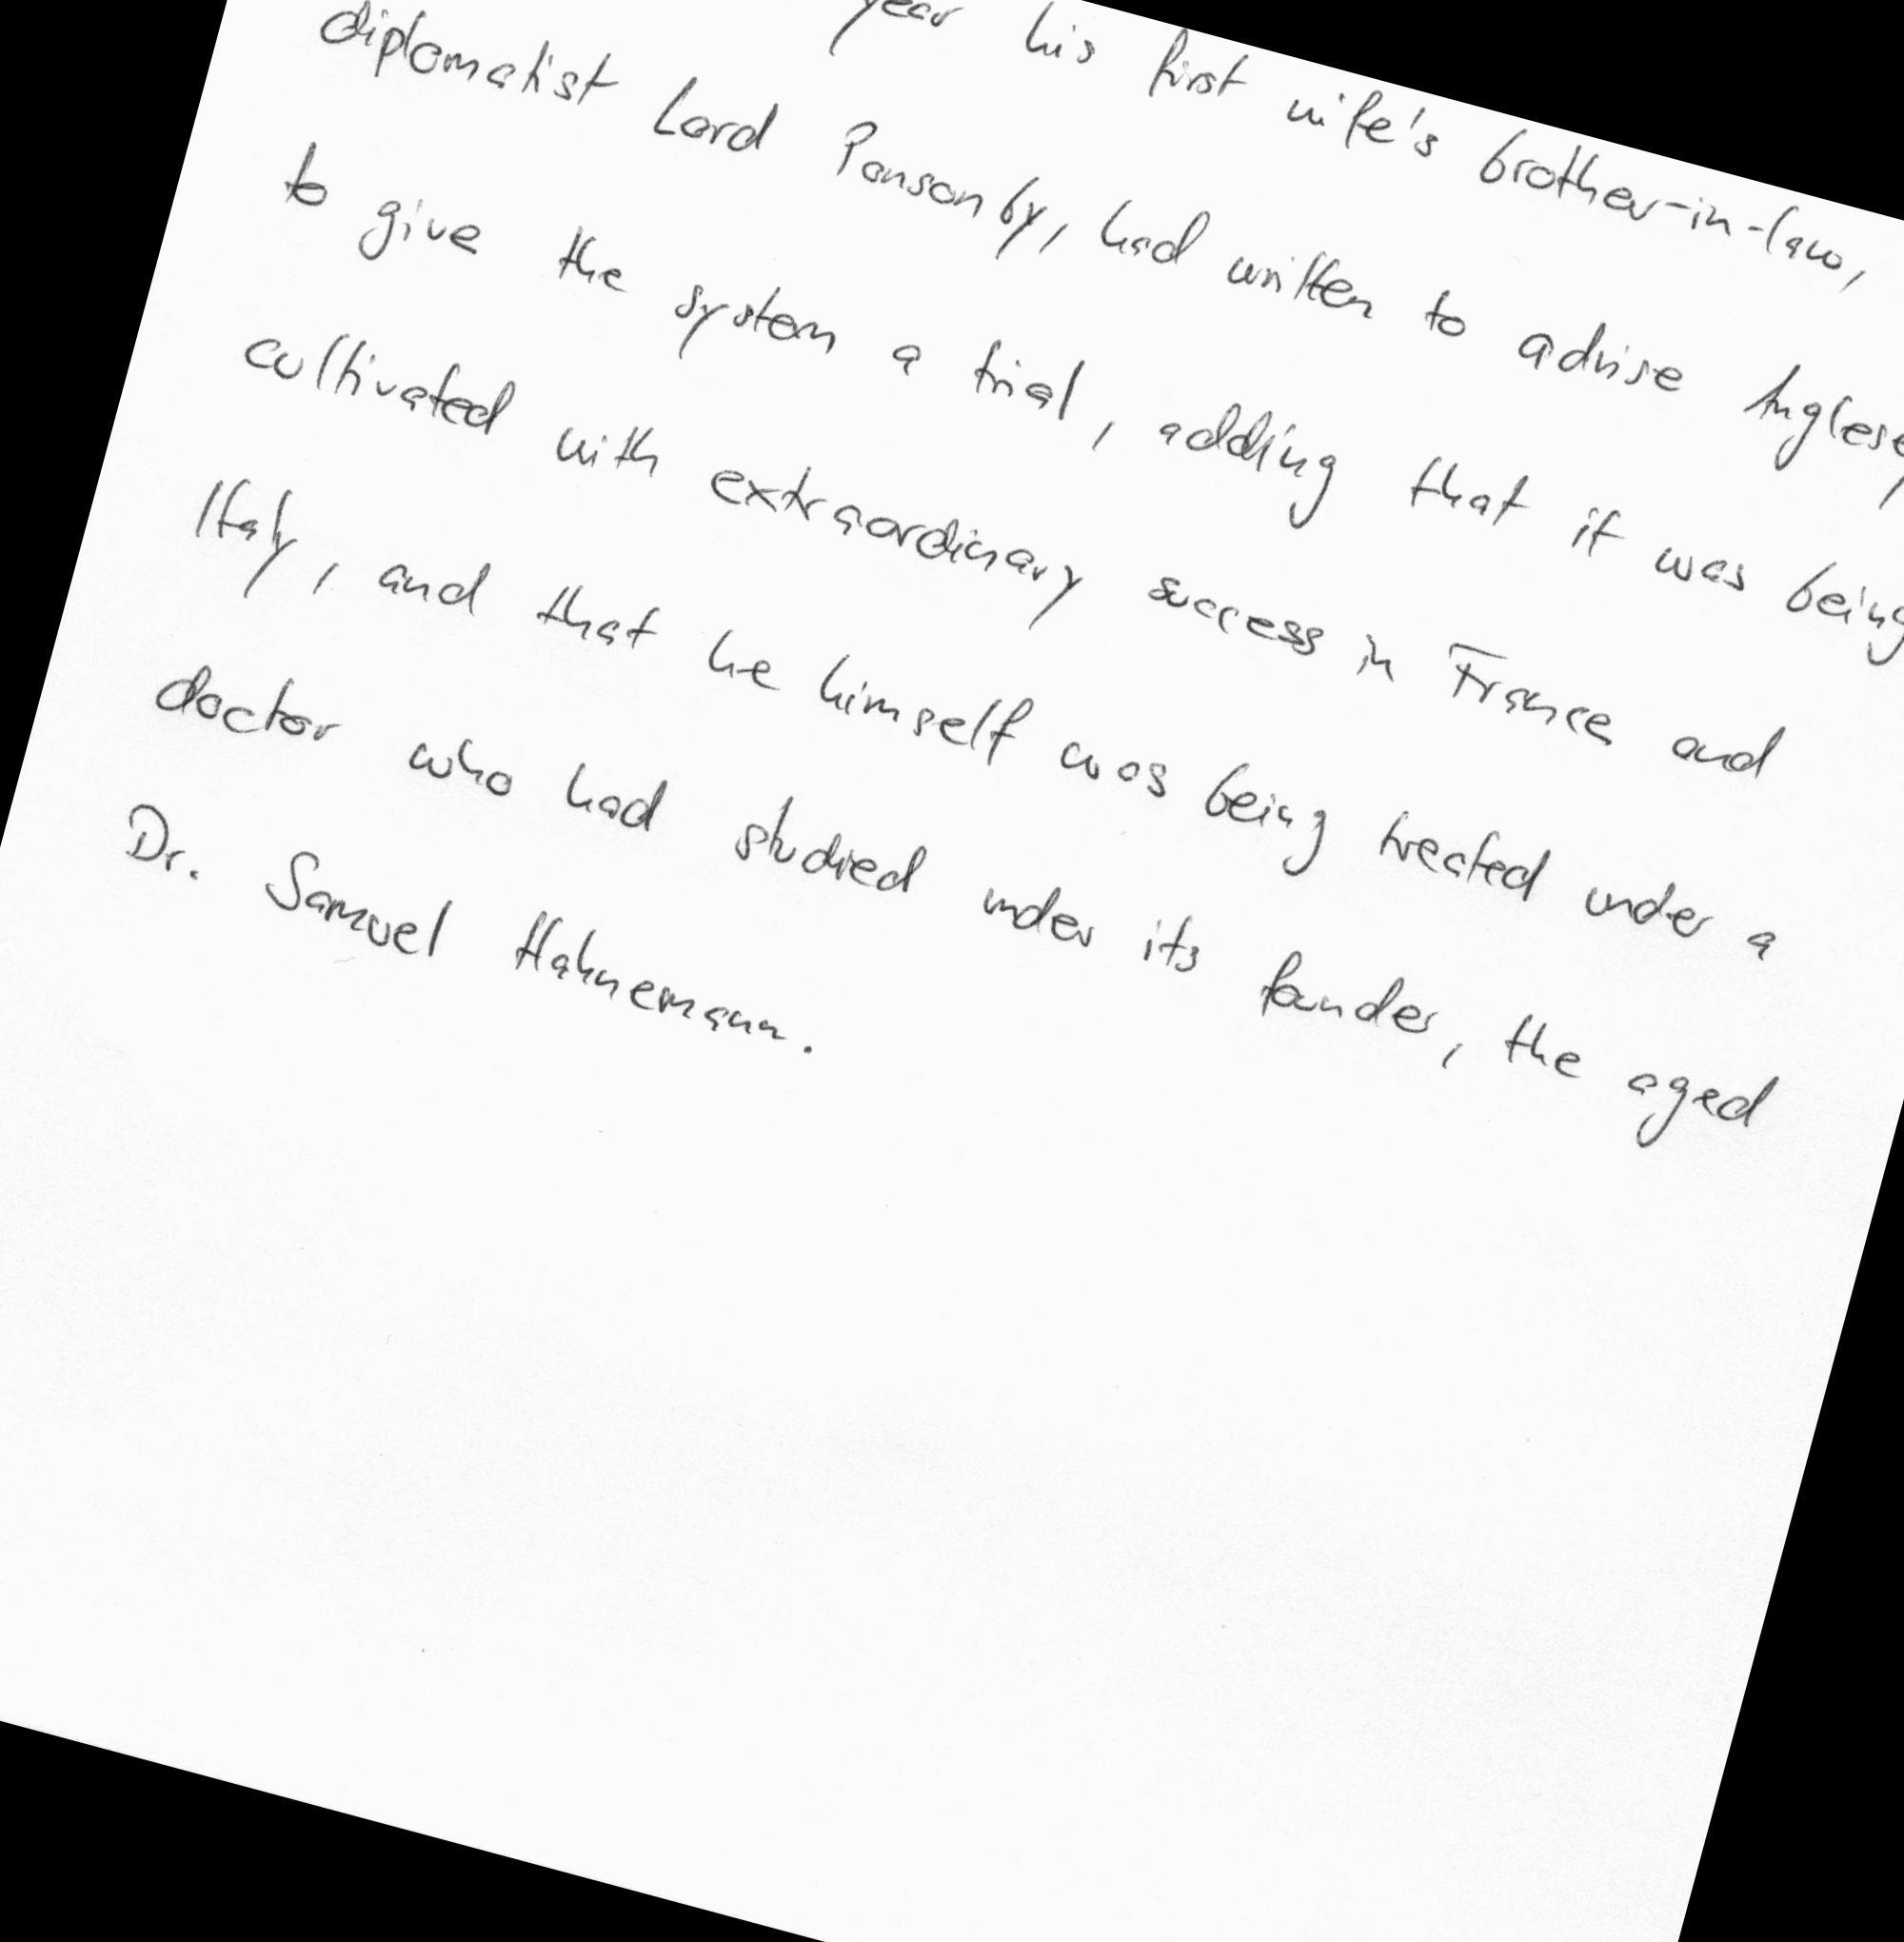 year his first wife's brother-in-law,
diplomatist Lord Ponsonby, had written to advise Anglesey
to give the system a trial, adding that it was being
cultivated with extraordinary success in France and
Italy, and that he himself was being treated under a
doctor who had studied under its founder, the aged
Dr. Samuel Hahnemann.